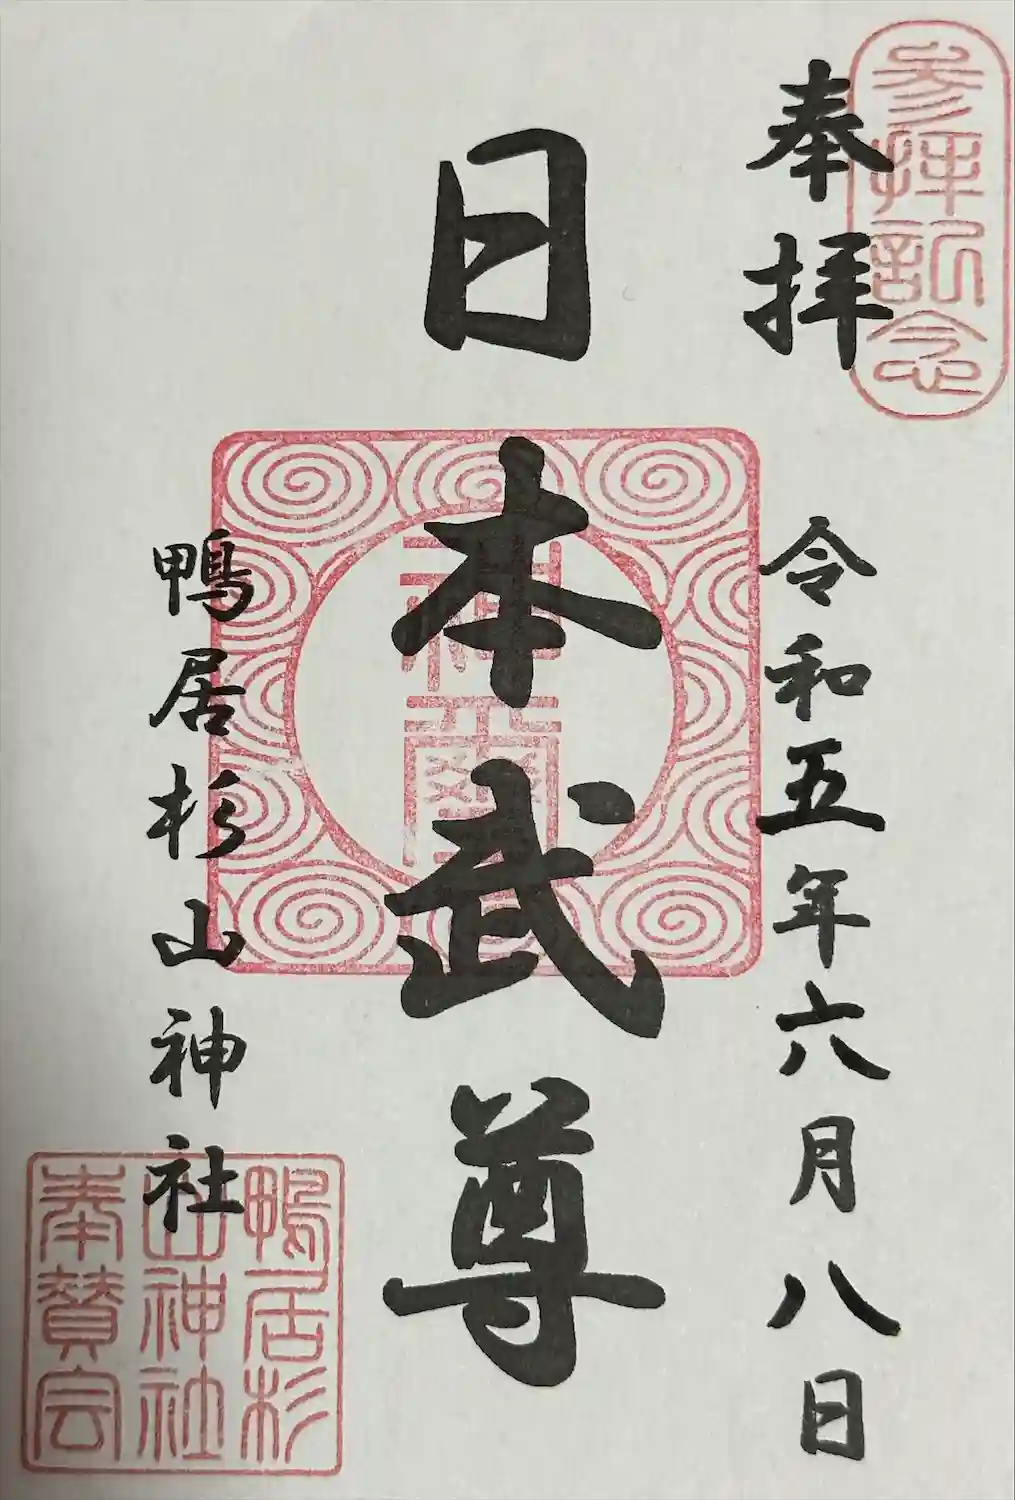 参拝記念
奉拝
令和五年六月八日
日本武尊
鴨居杉山神社
鴨居杉
山神社
奉賛会